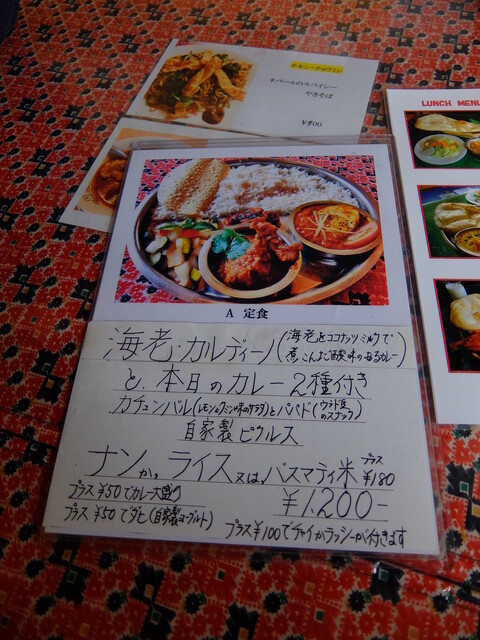 チキン・チョウミン
ネパールのスパイシー
やきそば
¥900
LUNCH MENU
A 定食
海老・カルディーノ(海老をココナッツミルクで
煮こんだ酸味のあるカレー)
と、本日のカレー2種付き
カチュンバル(レモンウジン味のサラダ)とパパド(ウラド豆のスナック)
自家製ピクルス
ナンか。ライス 又は、バスマティ米 プラス¥180
プラス¥50でカレー大盛り
¥1,200-
プラス¥50でダヒ(自家製ヨーグルト)
プラス¥100でチャイかラッシーが付きます